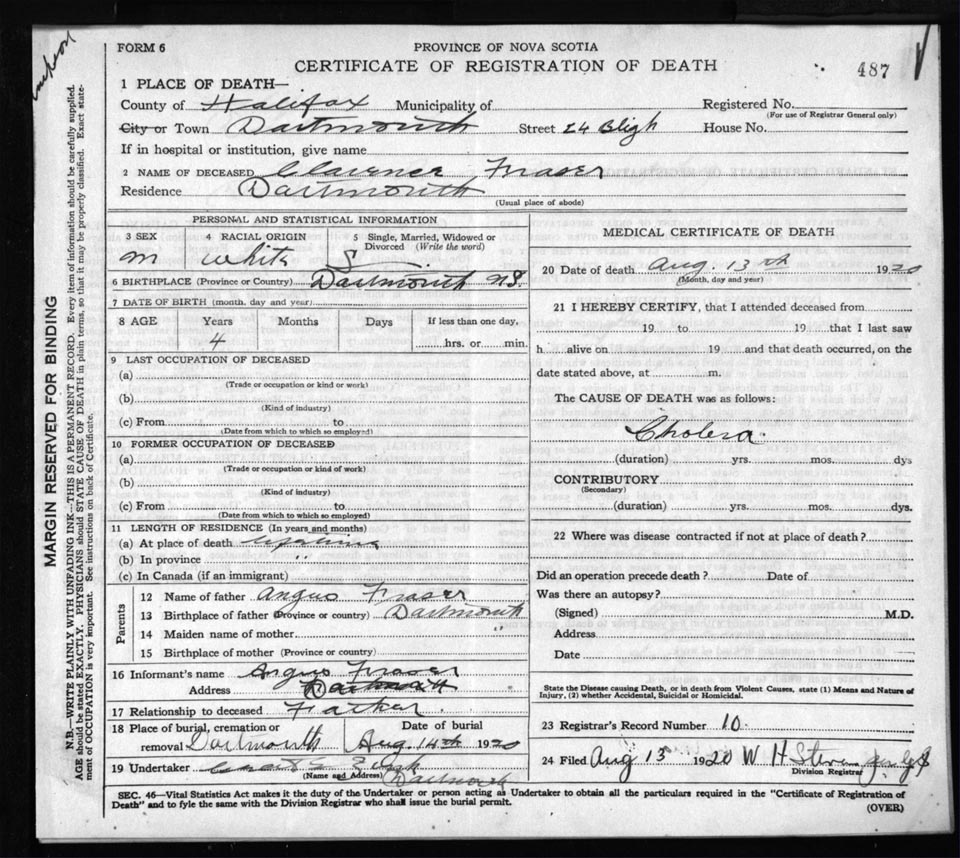 FORM 6
PROVINCE OF NOVA SCOTIA
CERTIFICATE OF REGISTRATION OF DEATH
487
1 PLACE OF DEATH—
County of Halifax Municipality of Registered No.
(For use of Registrar General only)
City or Town Dartmouth Street 24 Bligh House No.
If in hospital or institution, give name
2 NAME OF DECEASED Clarence Fraser
Residence Dartmouth
(Usual place of abode)
PERSONAL AND STATISTICAL INFORMATION
3 SEX 4 RACIAL ORIGIN 5 Single, Married, Widowed or Divorced (Write the word)
m white S
6 BIRTHPLACE (Province or Country) Dartmouth N.S.
7 DATE OF BIRTH (month, day and year)
8 AGE Years Months Days If less than one day,
4 hrs. or min.
9 LAST OCCUPATION OF DECEASED
(a)
(Trade or occupation or kind or work)
(b)
(Kind of industry)
(c) From to
(Date from which to which so employed)
10 FORMER OCCUPATION OF DECEASED
(a)
(Trade or occupation or kind of work)
(b)
(Kind of industry)
(c) From to
(Date from which to which so employed)
11 LENGTH OF RESIDENCE (In years and months)
(a) At place of death lifetime
(b) In province "
(c) In Canada (if an immigrant)
Parents
12 Name of father Angus Fraser
13 Birthplace of father (Province or country) Dartmouth
14 Maiden name of mother "
15 Birthplace of mother (Province or country)
16 Informant's name Angus Fraser
Address Dartmouth
17 Relationship to deceased Father
18 Place of burial, cremation or Date of burial
removal Dartmouth Aug. 14th 1920
19 Undertaker
(Name and Address) Dartmouth
MEDICAL CERTIFICATE OF DEATH
20 Date of death Aug. 13th 1920
(Month, day and year)
21 I HEREBY CERTIFY, that I attended deceased from
19 to 19 that I last saw
h alive on 19 and that death occurred, on the
date stated above, at m.
The CAUSE OF DEATH was as follows:
Cholera.
(duration) yrs. mos. dys
CONTRIBUTORY
(Secondary)
(duration) yrs. mos. dys.
22 Where was disease contracted if not at place of death?
Did an operation precede death? Date of
Was there an autopsy?
(Signed) M.D.
Address
Date
State the Disease causing Death, or in death from Violent Causes, state (1) Means and Nature of
Injury, (2) whether Accidental, Suicidal or Homicidal.
23 Registrar's Record Number 10
24 Filed Aug 13 1920 W H
Division Registrar
SEC. 46—Vital Statistics Act makes it the duty of the Undertaker or person acting as Undertaker to obtain all the particulars required in the "Certificate of Registration of
Death" and to fyle the same with the Division Registrar who shall issue the burial permit.
(OVER)
MARGIN RESERVED FOR BINDING
N.B.—WRITE PLAINLY WITH UNFADING INK—THIS IS A PERMANENT RECORD. Every item of information should be carefully supplied.
AGE should be stated EXACTLY. PHYSICIANS should STATE CAUSE OF DEATH in plain terms, so that it may be properly classified. Exact state-
ment of OCCUPATION is very important. See instructions on back of Certificate.